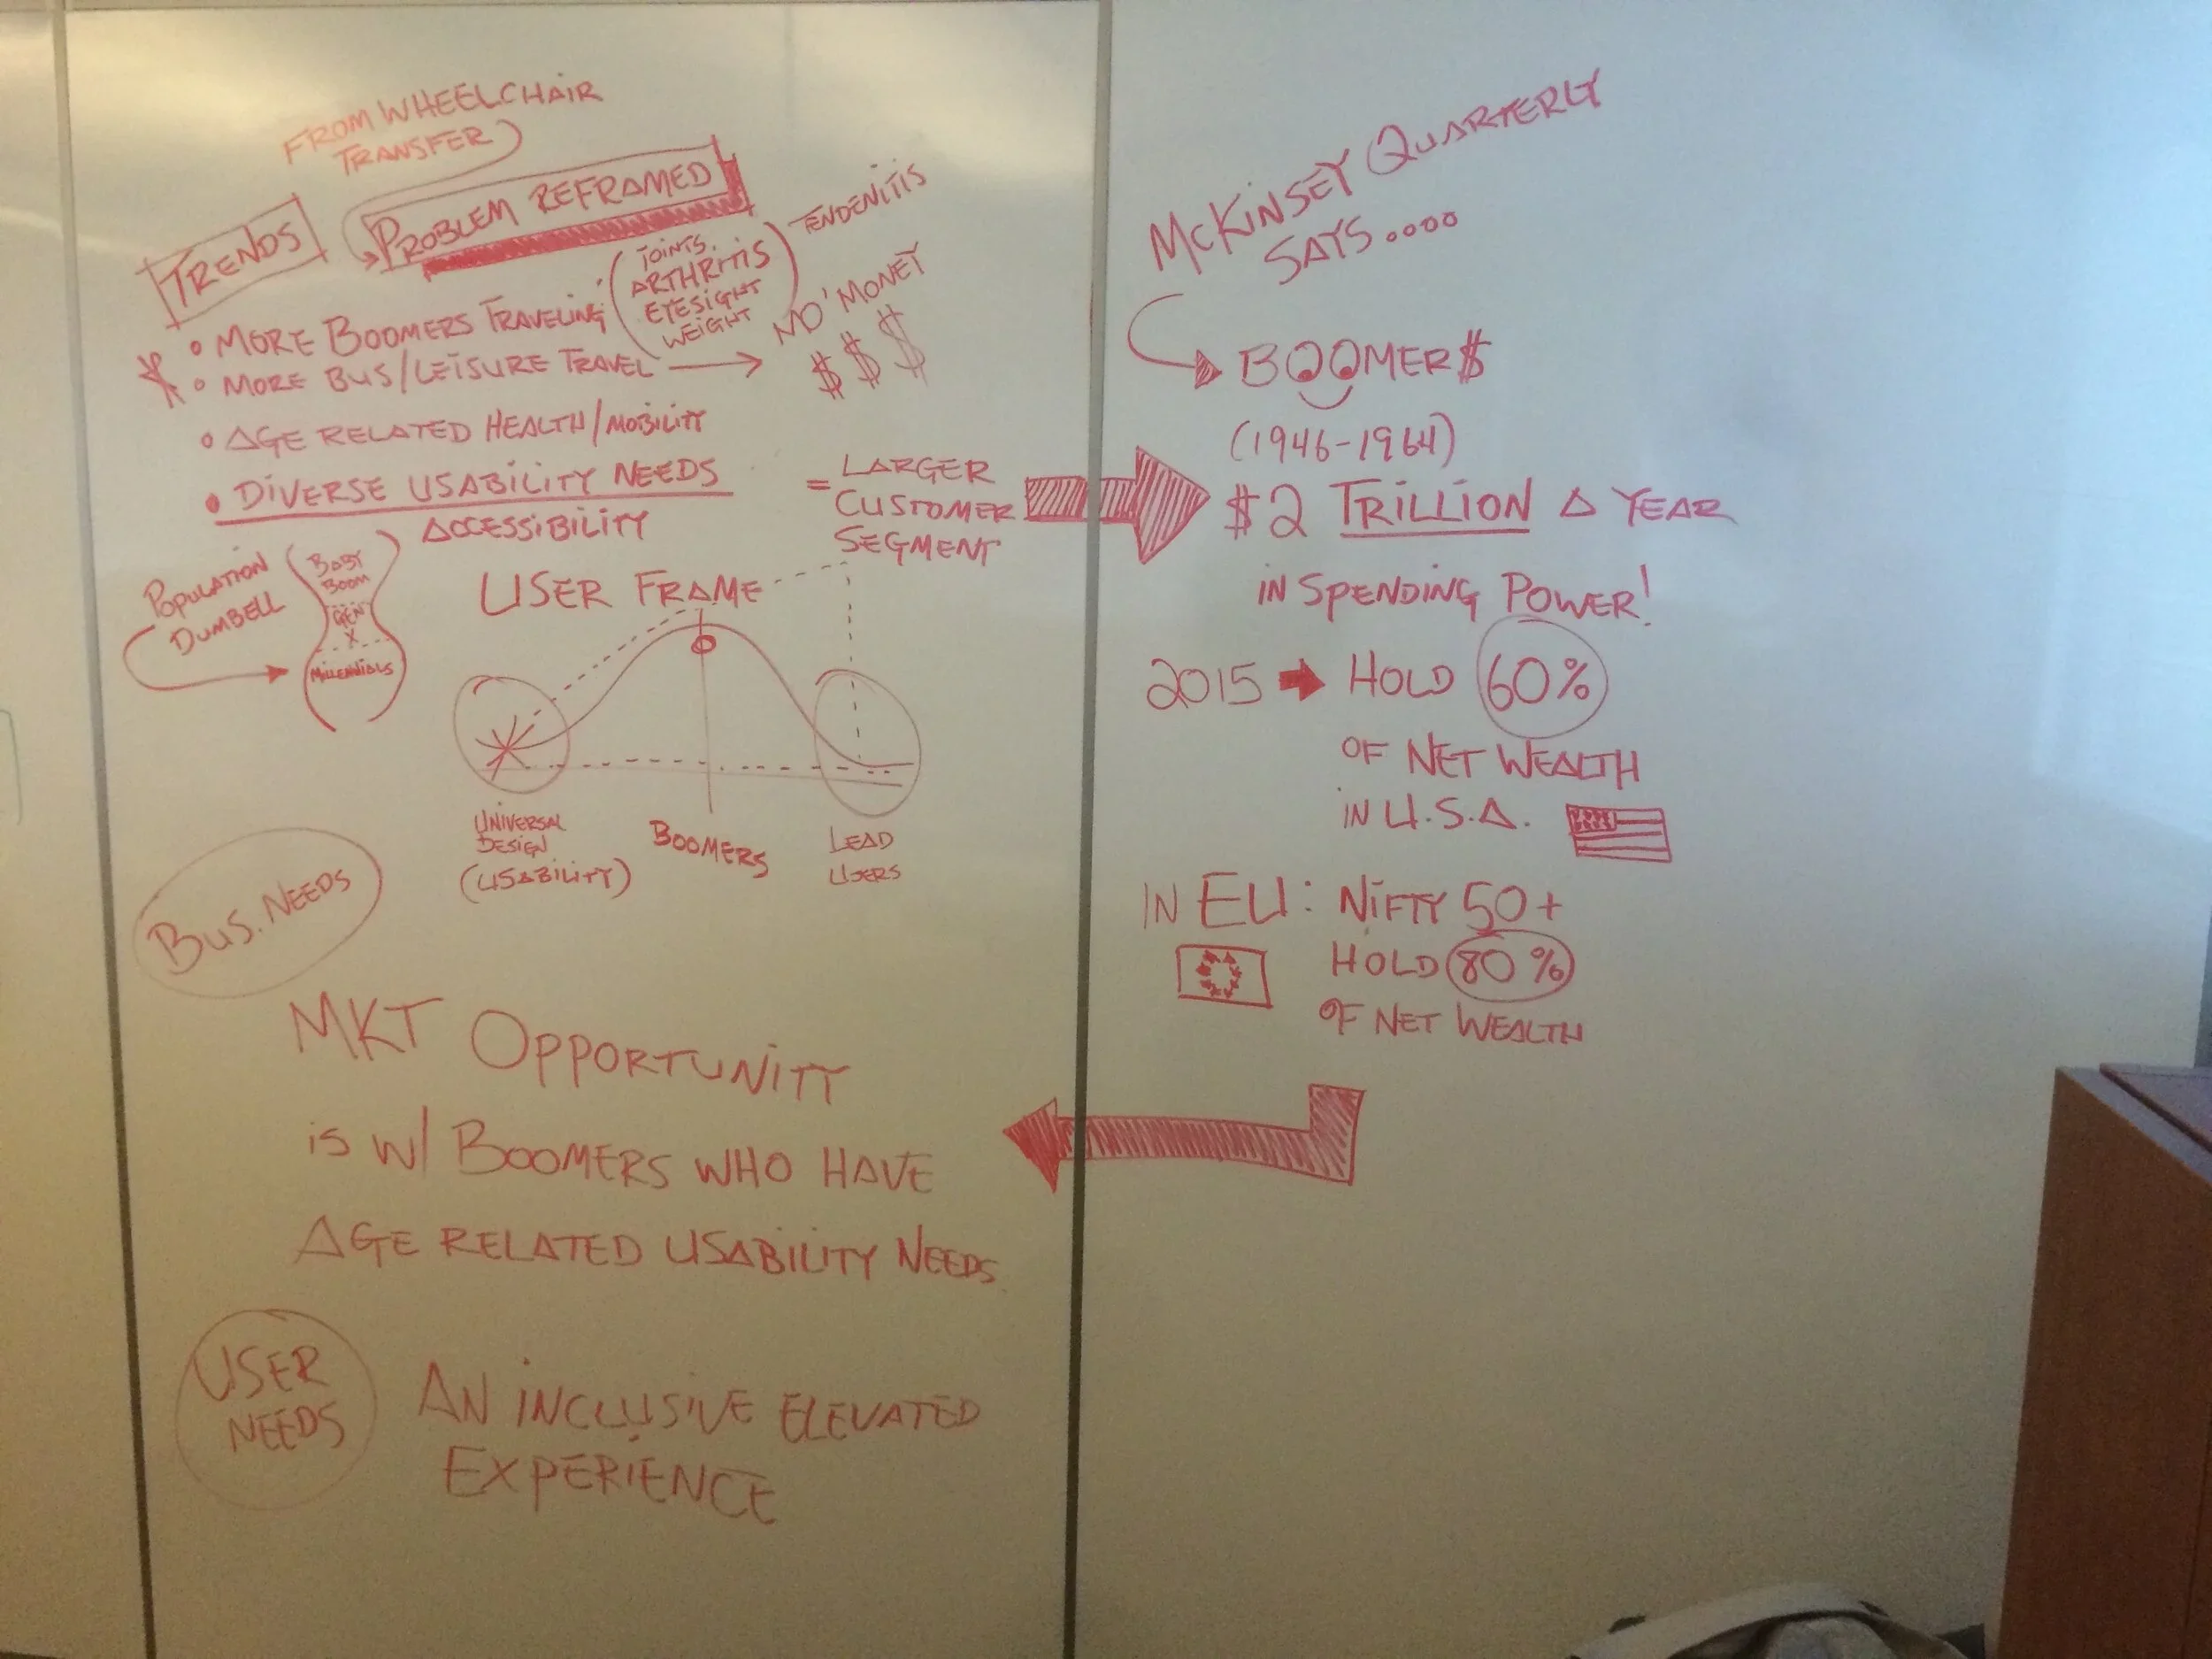 FROM WHEELCHAIR
TRANSFER
PROBLEM REFRAMED
TRENDS
• MORE BOOMERS TRAVELING
(JOINTS,
ARTHRITIS
EYESIGHT
WEIGHT)
TENDENITIS
• MORE BUS/LEISURE TRAVEL
MO' MONEY
$ $ $
• AGE RELATED HEALTH/MOBILITY
• DIVERSE USABILITY NEEDS
ACCESSIBILITY
= LARGER
CUSTOMER
SEGMENT
POPULATION
DUMBELL
BABY
BOOM
GEN
X
MILLENNIALS
USER FRAME
UNIVERSAL
DESIGN
(USABILITY)
BOOMERS
LEAD
USERS
BUS. NEEDS
MKT OPPORTUNITY
IS W/ BOOMERS WHO HAVE
AGE RELATED USABILITY NEEDS
USER
NEEDS
AN INCLUSIVE ELEVATED
EXPERIENCE
McKINSEY QUARTERLY
SAYS....
BOOMER$
(1946-1964)
$2 TRILLION A YEAR
IN SPENDING POWER!
2015 → HOLD 60%
OF NET WEALTH
IN U.S.A.
IN EU: NIFTY 50+
HOLD 80%
OF NET WEALTH